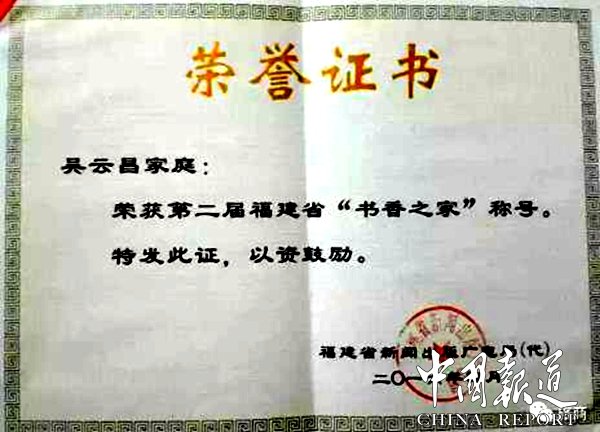 荣誉证书
吴云昌家庭：
荣获第二届福建省“书香之家”称号。
特发此证，以资鼓励。
福建省新闻出版广电局(代)
二〇一
年
月
中国报道
CHINA REPORT